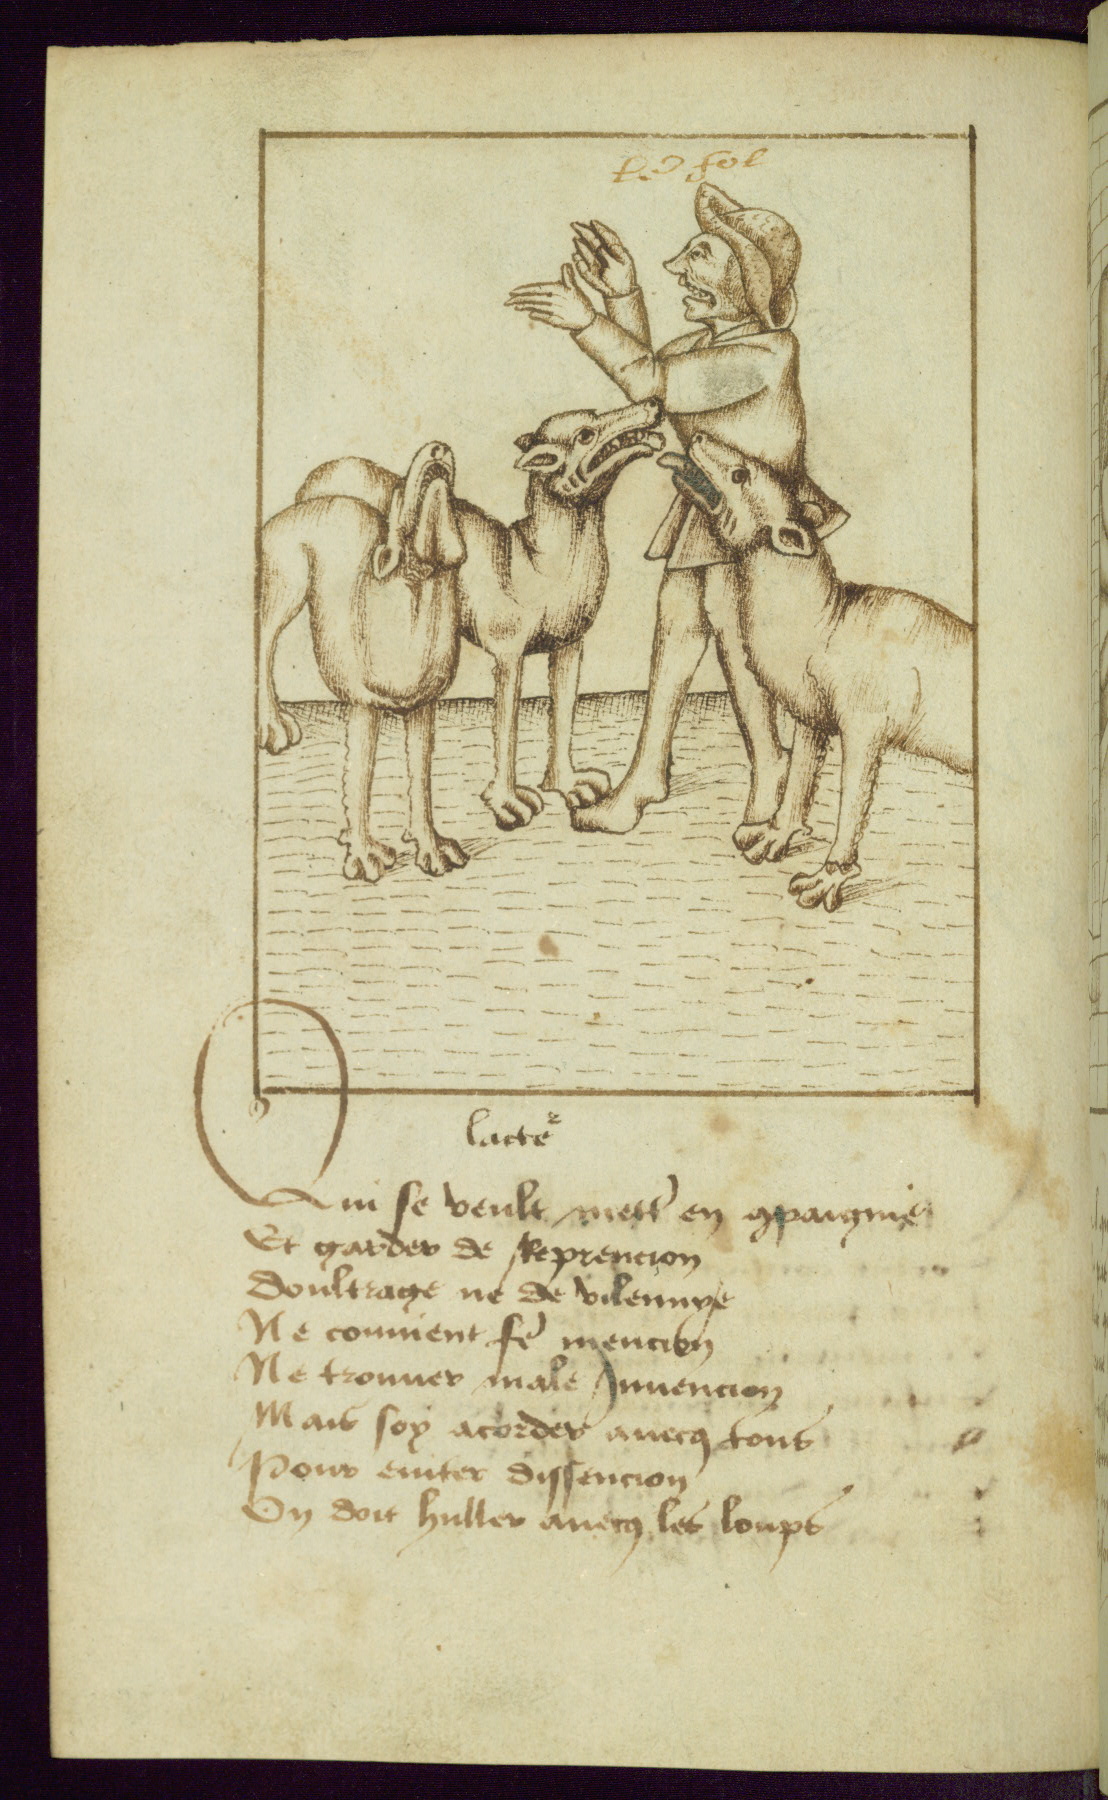 le fol
lacteʳ
Qui se veult mettʳ en ꝯpaignie
Et garder de Reprencion
Doultrage ne de vilennye
Ne conuient feʳ mencion
Ne trouuer male Inuencion
Mais soy acorder auecqꝫ tous
Pour euiter dissencion
On doit huller auecqꝫ les loups